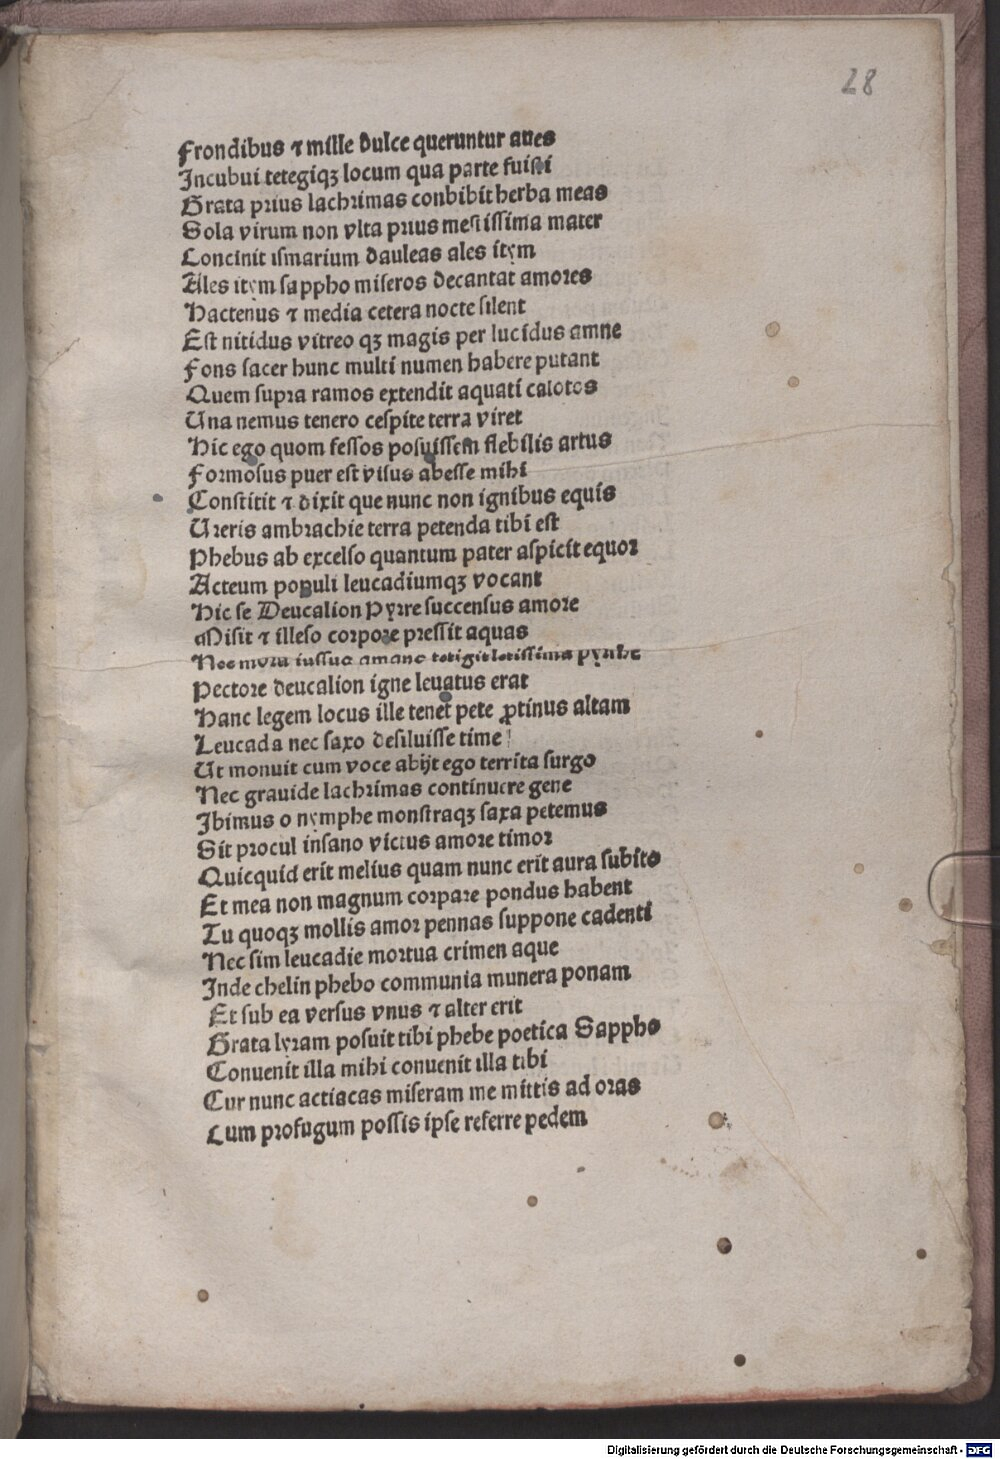 28
Frondibus ⁊ mille dulce queruntur aues
Incubui tetegiqꝫ locum qua parte fuisti
Grata prius lachrimas conbibit herba meas
Sola virum non vlta prius mestissima mater
Concinit ismarium dauleas ales itym
Ales itym sappho miseros decantat amores
Hactenus ⁊ media cetera nocte silent
Est nitidus vitreo qꝫ magis per lucidus amne
Fons sacer hunc multi numen habere putant
Quem supra ramos extendit aquati calotos
Una nemus tenero cespite terra viret
Hic ego quom fessos posuissem flebilis artus
Formosus puer est visus abesse mihi
Constitit ⁊ dixit que nunc non ignibus equis
Ureris ambrachie terra petenda tibi est
Phebus ab excelso quantum pater aspicit equor
Acteum populi leucadiumqꝫ vocant
Hic se Deucalion Pyrre succensus amore
Misit ⁊ illeso corpore pressit aquas
Nec mora iussus amans tetigit letissima pyrrhe
Pectore deucalion igne leuatus erat
Hanc legem locus ille tenet pete ꝓtinus altam
Leucada nec saxo desiluisse time
Ut monuit cum voce abijt ego territa surgo
Nec grauide lachrimas continuere gene
Ibimus o nymphe monstraqꝫ saxa petemus
Sit procul insano victus amore timor
Quicquid erit melius quam nunc erit aura subito
Et mea non magnum corpare pondus habent
Tu quoqꝫ mollis amor pennas suppone cadenti
Nec sim leucadie mortua crimen aque
Inde chelin phebo communia munera ponam
Et sub ea versus vnus ⁊ alter erit
Grata lyram posuit tibi phebe poetica Sappho
Conuenit illa mihi conuenit illa tibi
Cur nunc actiacas miseram me mittis ad oras
Cum profugum possis ipse referre pedem
Digitalisierung gefördert durch die Deutsche Forschungsgemeinschaft - DFG